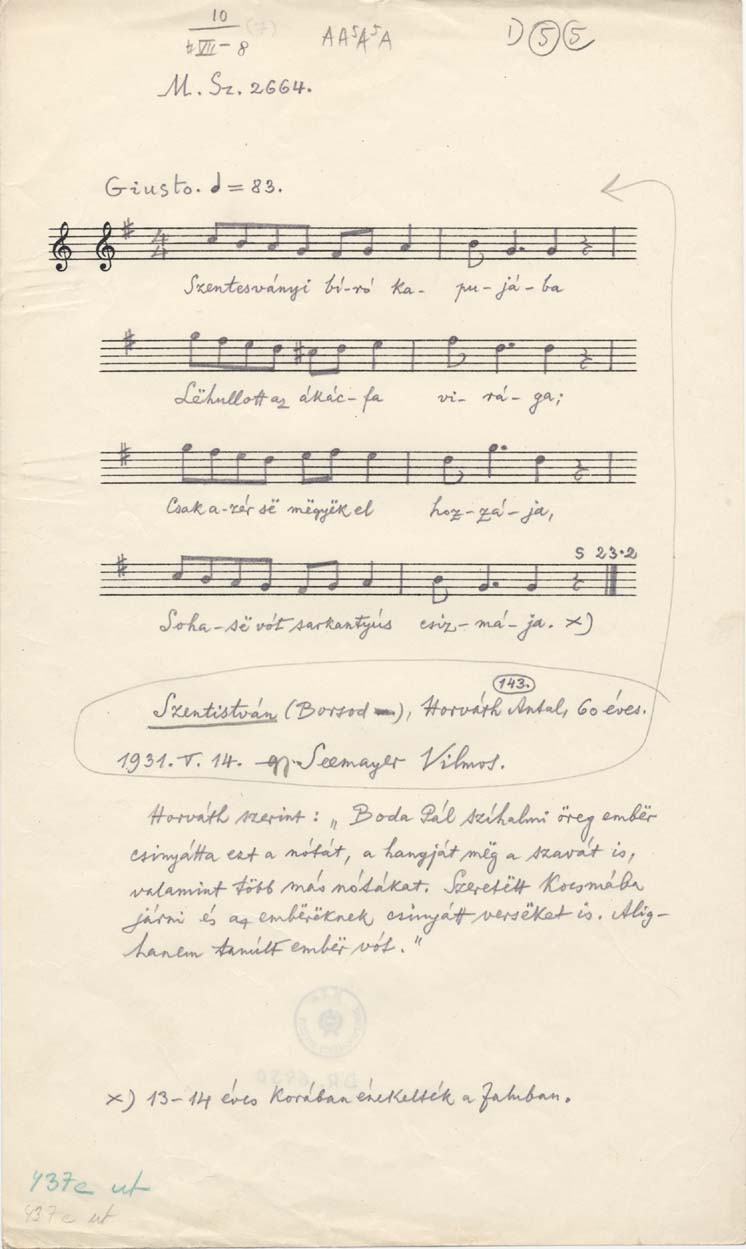 10
VII-8
AA⁵A⁵A
D 5 5
M. Sz. 2664.
Giusto. = 83.
4/4
Szentesványi bí-ró ka- pu-já-ba
Lëhullott az ákác-fa vi-rá-ga;
Csak a-zér së mëgyëk el hoz-zá-ja,
S 23·2
Soha-së vót sarkantyús csiz-má-ja. x)
143.
Szentistván (Borsod), Horváth Antal, 60 éves.
1931. V. 14. gy. Seemayer Vilmos.
Horváth szerint: „Boda Pál szíhalmi öreg embër
csinyátta ezt a nótát, a hangját mëg a szavát is,
valamint több más nótákat. Szeretëtt kocsmába
járni és az embërëknek csinyátt versëket is. Alig-
hanem tanútt embër vót."
x) 13-14 éves korában énekelték a faluban.
437c ut
437c ut